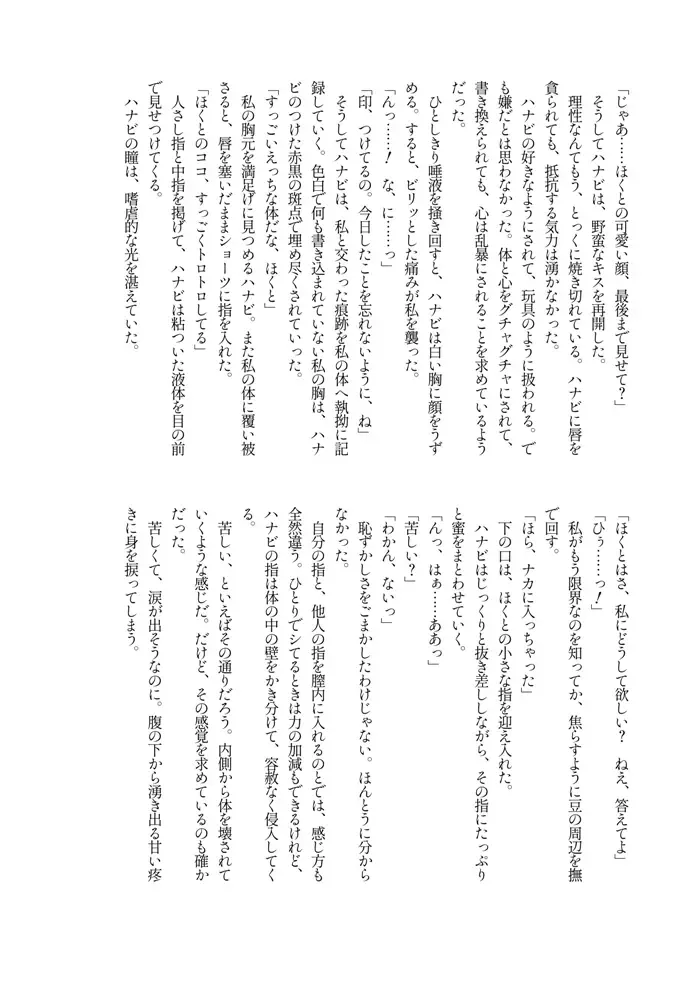 「じゃあ……ほくとの可愛い顔、最後まで見せて？」
そうしてハナビは、野蛮なキスを再開した。
理性なんてもう、とっくに焼き切れている。ハナビに唇を
貪られても、抵抗する気力は湧かなかった。
ハナビの好きなようにされて、玩具のように扱われる。で
も嫌だとは思わなかった。体と心をグチャグチャにされて、
書き換えられても、心は乱暴にされることを求めているよう
だった。
ひとしきり唾液を掻き回すと、ハナビは白い胸に顔をうず
める。すると、ビリッとした痛みが私を襲った。
「んっ……！　な、に……っ」
「印、つけてるの。今日したことを忘れないように、ね」
そうしてハナビは、私と交わった痕跡を私の体へ執拗に記
録していく。色白で何も書き込まれていない私の胸は、ハナ
ビのつけた赤黒の斑点で埋め尽くされていった。
「すっごいえっちな体だな、ほくと」
私の胸元を満足げに見つめるハナビ。また私の体に覆い被
さると、唇を塞いだままショーツに指を入れた。
「ほくとのココ、すっごくトロトロしてる」
人さし指と中指を掲げて、ハナビは粘ついた液体を目の前
で見せつけてくる。
ハナビの瞳は、嗜虐的な光を湛えていた。
「ほくとはさ、私にどうして欲しい？　ねえ、答えてよ」
「ひぅ……っ！」
私がもう限界なのを知ってか、焦らすように豆の周辺を撫
で回す。
「ほら、ナカに入っちゃった」
下の口は、ほくとの小さな指を迎え入れた。
ハナビはじっくりと抜き差ししながら、その指にたっぷり
と蜜をまとわせていく。
「んっ、はぁ……ああっ」
「苦しい？」
「わかん、ないっ」
恥ずかしさをごまかしたわけじゃない。ほんとうに分から
なかった。
自分の指と、他人の指を膣内に入れるのとでは、感じ方も
全然違う。ひとりでシてるときは力の加減もできるけれど、
ハナビの指は体の中の壁をかき分けて、容赦なく侵入してく
る。
苦しい、といえばその通りだろう。内側から体を壊されて
いくような感じだ。だけど、その感覚を求めているのも確か
だった。
苦しくて、涙が出そうなのに。腹の下から湧き出る甘い疼
きに身を捩ってしまう。